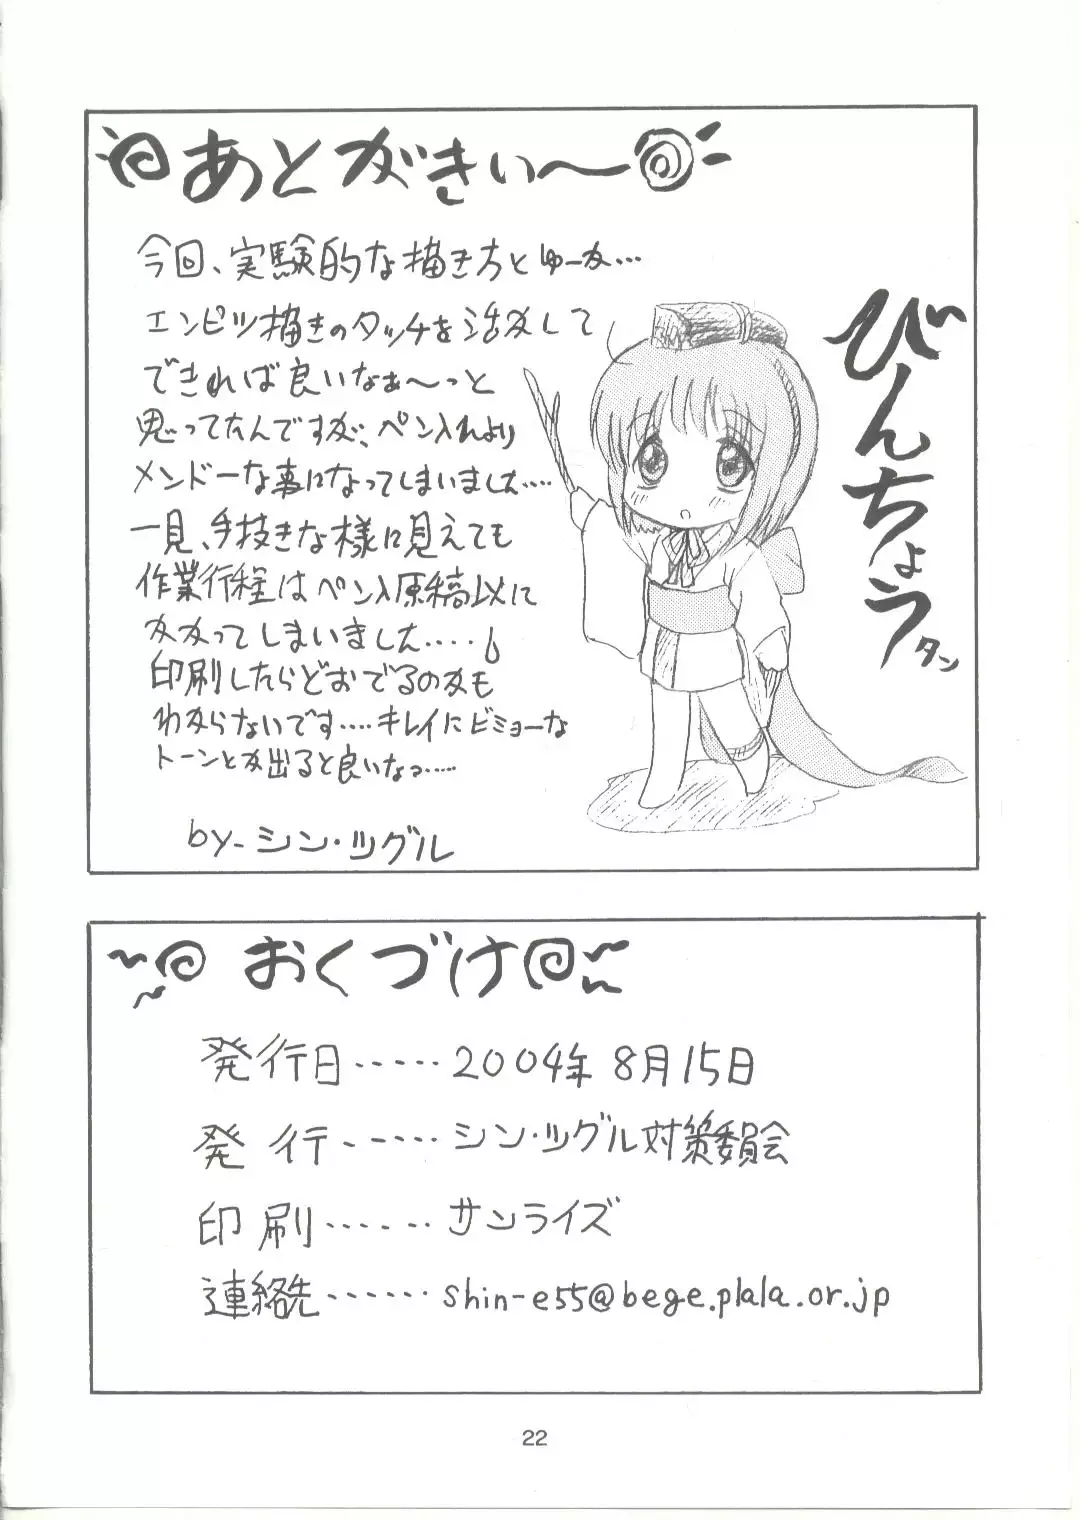 あとがきぃ〜
今回、実験的な描き方とゆーか…
エンピツ描きのタッチを活かして
できれば良いなぁ〜っと
思ってたんですが、ペン入れより
メンドーな事になってしまいました….
一見、手抜きな様に見えても
作業行程はペン入原稿以に
かかってしまいました….
印刷したらどおでるのかも
わからないです…..キレイにビミョーな
トーンとか出ると良いなっ…..
by-シン・ツグル
びんちょうタン
おくづけ
発行日……2004年8月15日
発行……シン・ツグル対策委員会
印刷……サンライズ
連絡先……shin-e55@bege.plala.or.jp
22